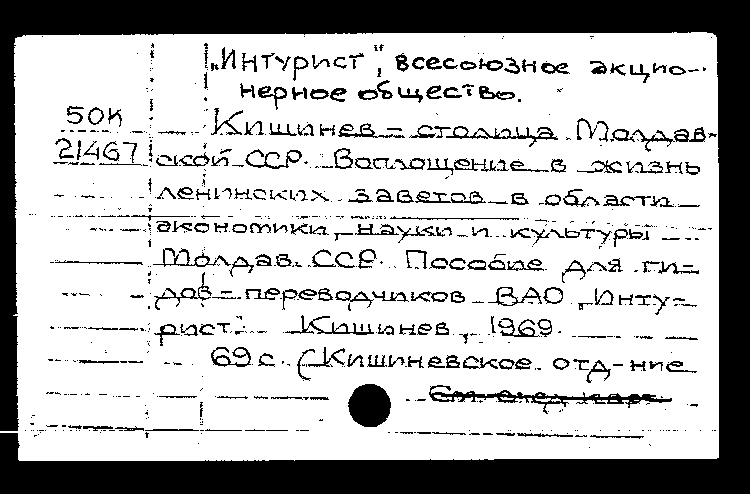 „Интурист", всесоюзное акцио-
нерное общество.
50К
21467
Кишинев – столица Молдав-
ской ССР. Воплощение в жизнь
ленинских заветов в области
экономики, науки и культуры
Молдав. ССР. Пособие для ги-
дов – переводчиков ВАО „Инту-
рист". Кишинев, 1969.
69 с. (Кишиневское отд-ние
См. след. карт.